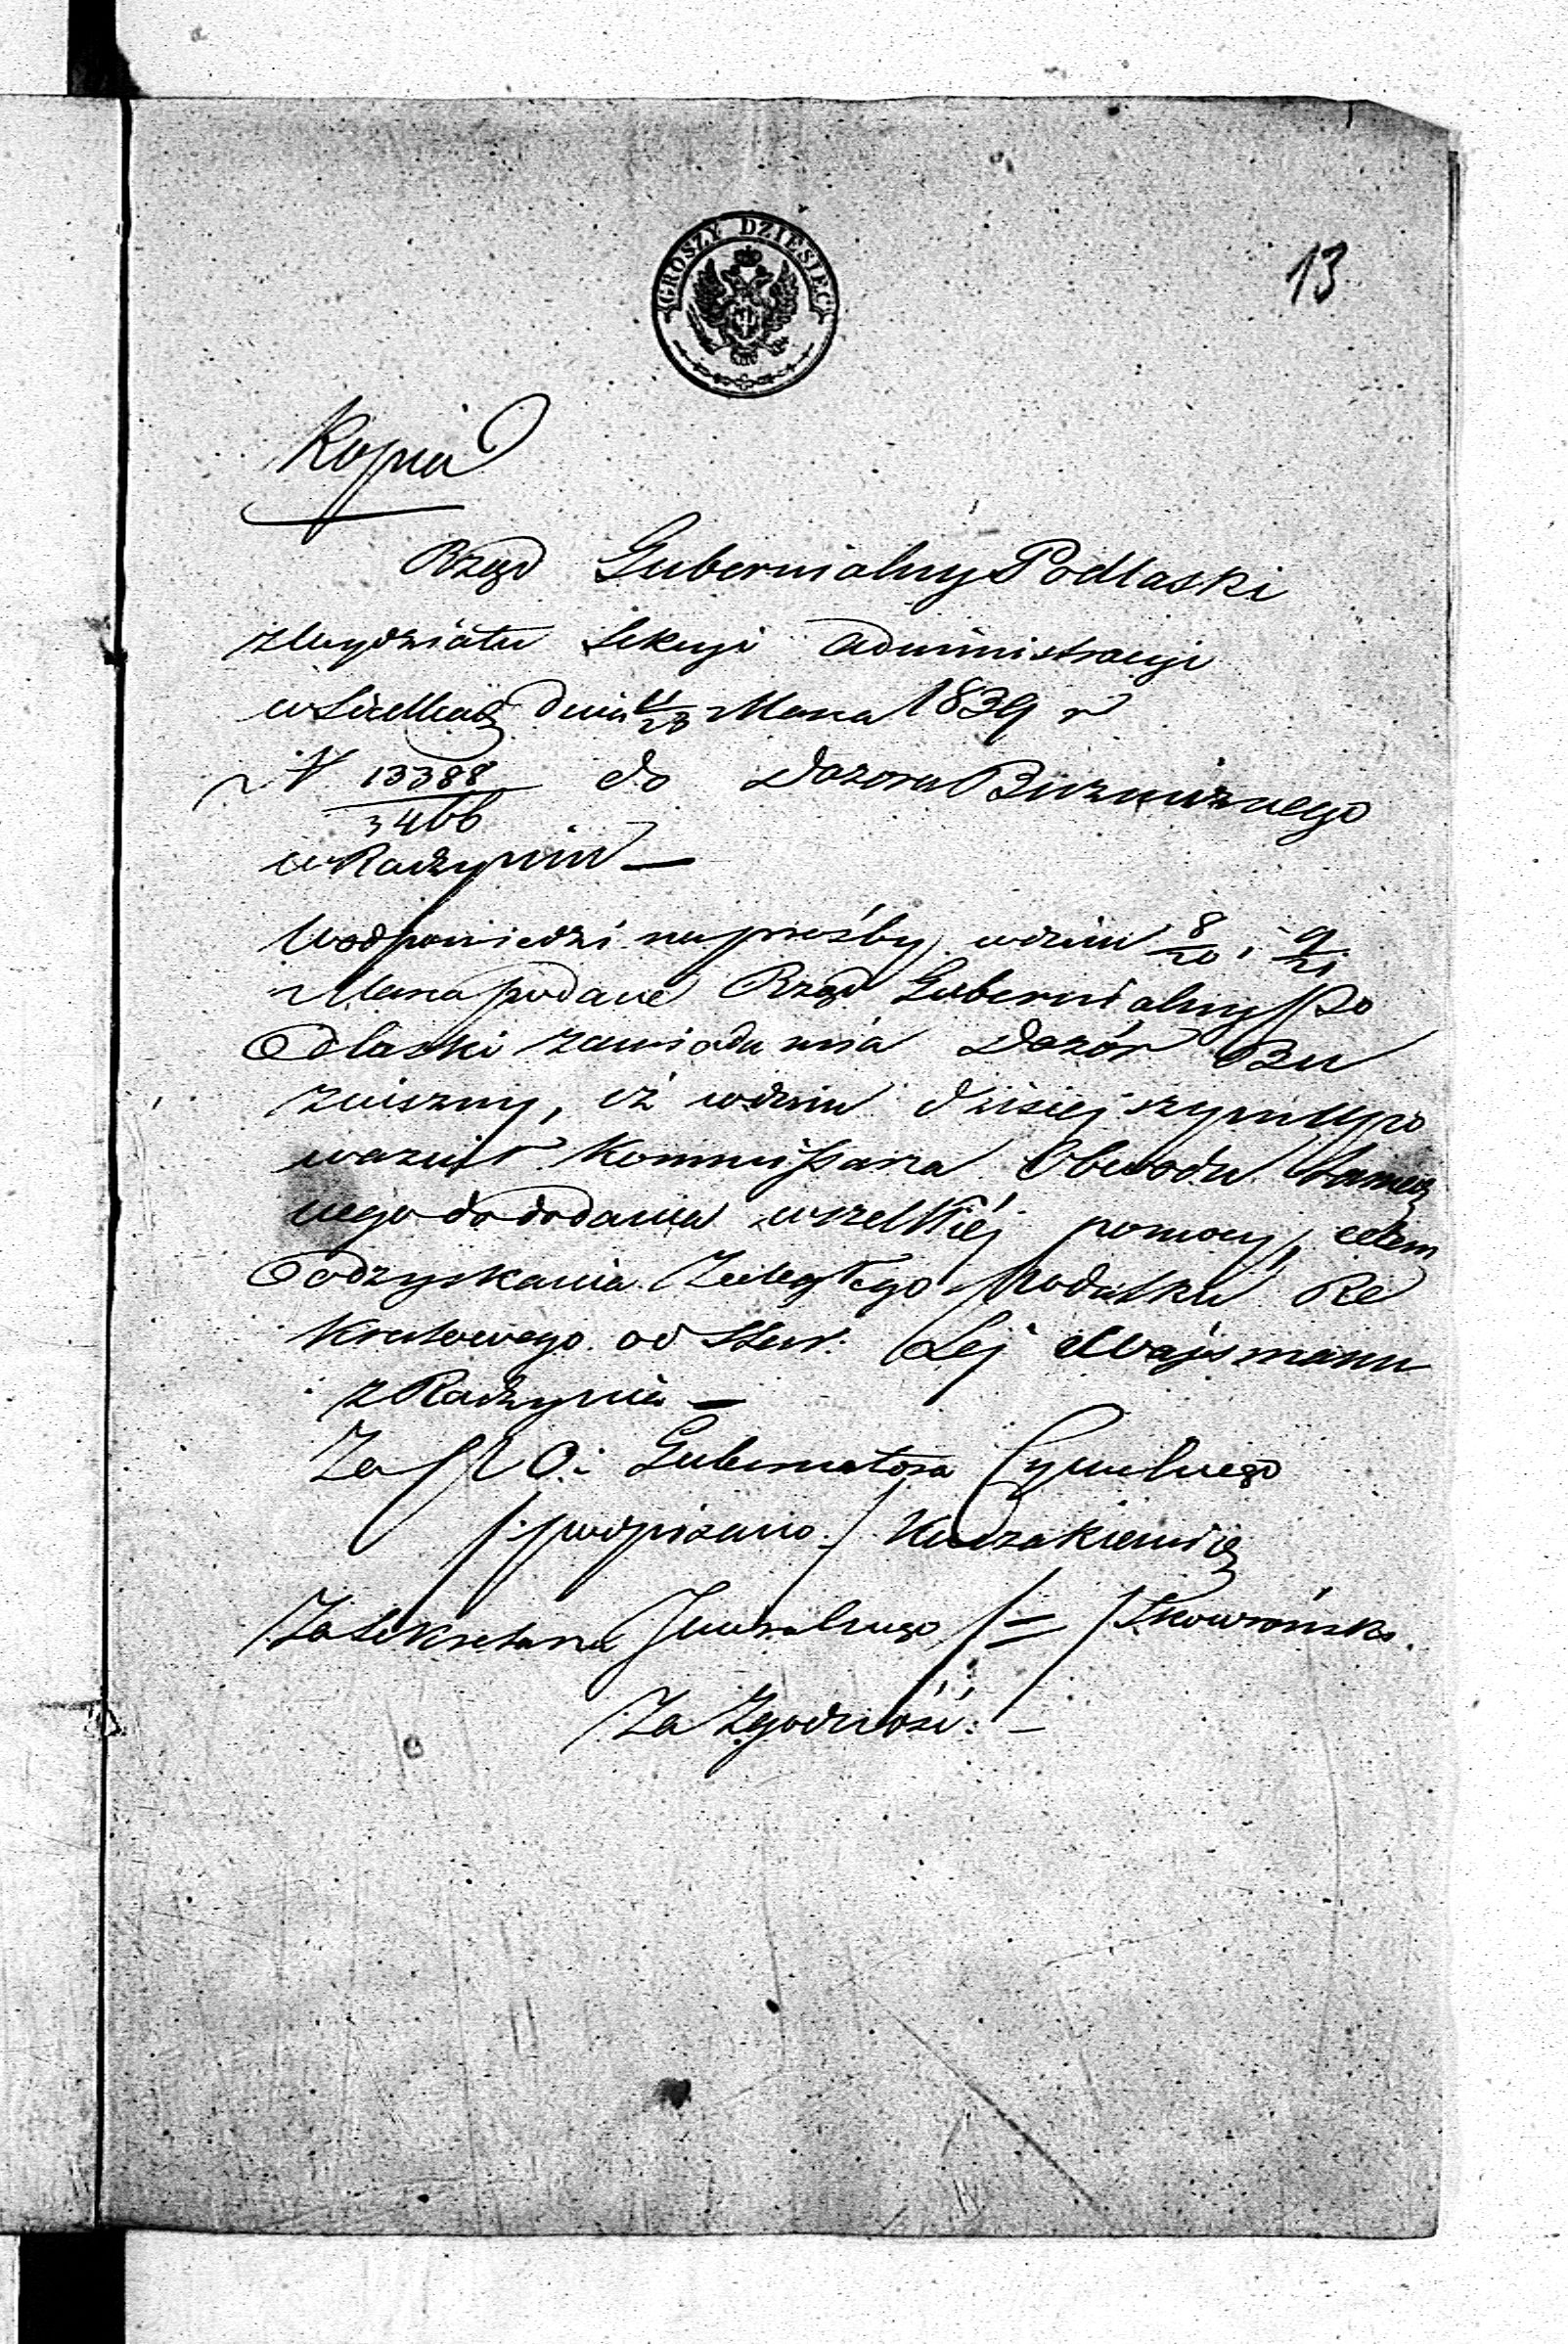 GROSZY DZIESIĘĆ
13
Kopia
Rząd Gubernialny Podlaski
z Wydziału Sekcyi Administracyi
w Siedlcach dnia 11/23 Marca 1839 r
N 13388/3466 do Dozoru Bużniznego
w Radzyniu —
W odpowiedzi na prośby w dniu 8/20 i 9/21
Marca podane Rząd Gubernialny Po
dlaski zawiadamia Dozór Bu
żniczny, iż w dniu dzisiejszym Upo
ważnił Kommissarza Obwodu tamecz
nego do dodania wszelkiéj pomocy, celem
odzyskania Zaległego podatku Re
krutowego od Star: Lej Wajsmann
z Radzynia —
Za P. O: Gubernatora Cywilnego
/: podpisano :/
Za Sekretarza Jeneralnego /=/ Skowroński.
Za Zgodność: —